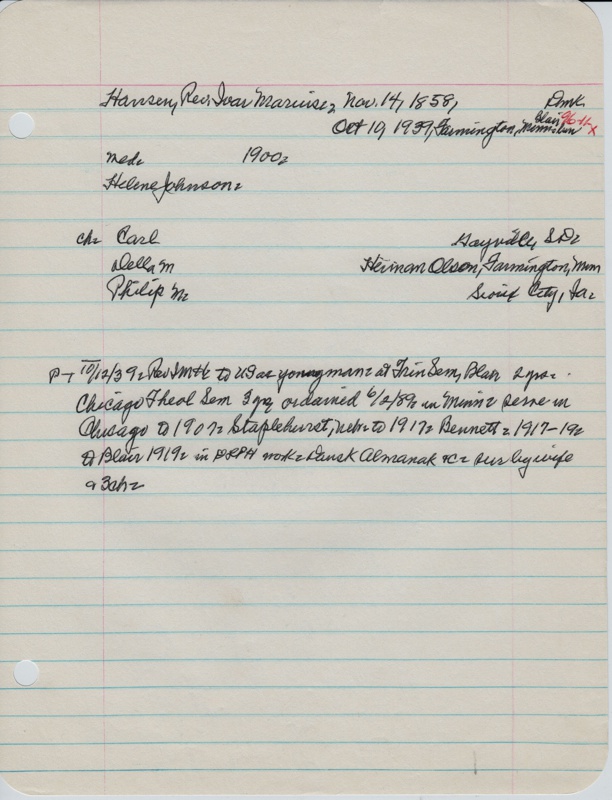 Hansen, Rev. Ivar Marius, Nov. 14, 1858, Dmk
Oct 10, 1939, Farmington, Minn Blair
Med. 1900.
Helene Johnson.
ch. Carl Gayville, S.D.
Della M Herman Olson, Farmington, Minn
Philip M. Sioux City, Ia.
P-T 10/12/39. Rev IMH to US as young man. at Trin Sem, Blair 2 yrs.
Chicago Theol Sem 3 yr, ordained in Minn. serve in
Chicago to 1907. Staplehurst, Neb. to 1917. Bennett. 1917-19.
to Blair 1919. in DLPH work. Dansk Almanak &c. sur by wife
& 3 ch.